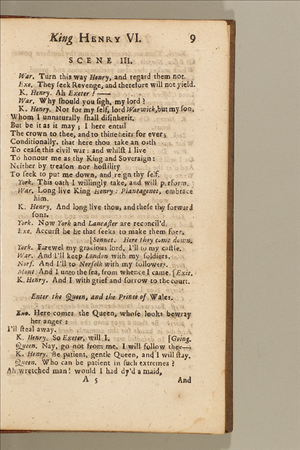 King HENRY VI. 9
SCENE III.
War. Turn this way Henry, and regard them not.
Exe. They seek Revenge, and therefore will not yield.
K. Henry. Ah Exeter! —
War. Why should you sigh, my lord?
K. Henry. Not for my self, lord Warwick, but my son,
Whom I unnaturally shall disinherit.
But be it as it may; I here entail
The crown to thee, and to thine heirs for ever;
Conditionally, that here thou take an oath
To cease this civil war: and whilst I live
To honour me as thy King and Soveraign:
Neither by treason nor hostility
To seek to put me down, and reign thy self.
York. This oath I willingly take, and will perform.
War. Long live King Henry: Plantagenet, embrace
him.
K. Henry. And long live thou, and these thy forward
sons.
York. Now York and Lancaster are reconcil'd.
Exe. Accurst be he that seeks to make them foes.
[Sennet. Here they come down.
York. Farewel my gracious lord, I'll to my castle.
War. And I'll keep London with my soldiers.
Norf. And I'll to Norfolk with my followers.
Mont. And I unto the sea, from whence I came. [Exit.
K. Henry. And I with grief and sorrow to the court.
Enter the Queen, and the Prince of Wales.
Exe. Here comes the Queen, whose looks bewray
her anger:
I'll steal away.
K. Henry. So Exeter, will I. [Going.
Queen. Nay, go not from me, I will follow thee—
K. Henry. Be patient, gentle Queen, and I will stay.
Queen. Who can be patient in such extremes?
Ah wretched man! would I had dy'd a maid,
A 5 And